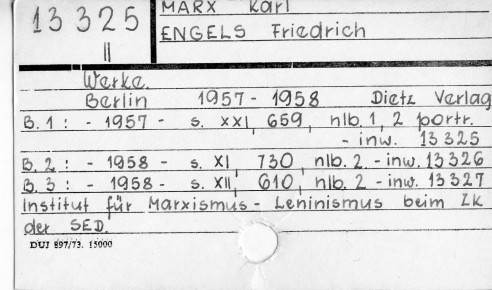 13 325
II
MARX Karl
ENGELS Friedrich
Werke.
Berlin 1957 - 1958 Dietz Verlag
B. 1 : - 1957 - s. XXI, 659, nlb. 1, 2 portr.
- inw. 13 325
B. 2 : - 1958 - s. XI, 730, nlb. 2. - inw. 13 326
B. 3 : - 1958 - s. XII, 610, nlb. 2 - inw. 13 327
Institut für Marxismus - Leninismus beim ZK
der SED.
DUJ 897/73. 15000